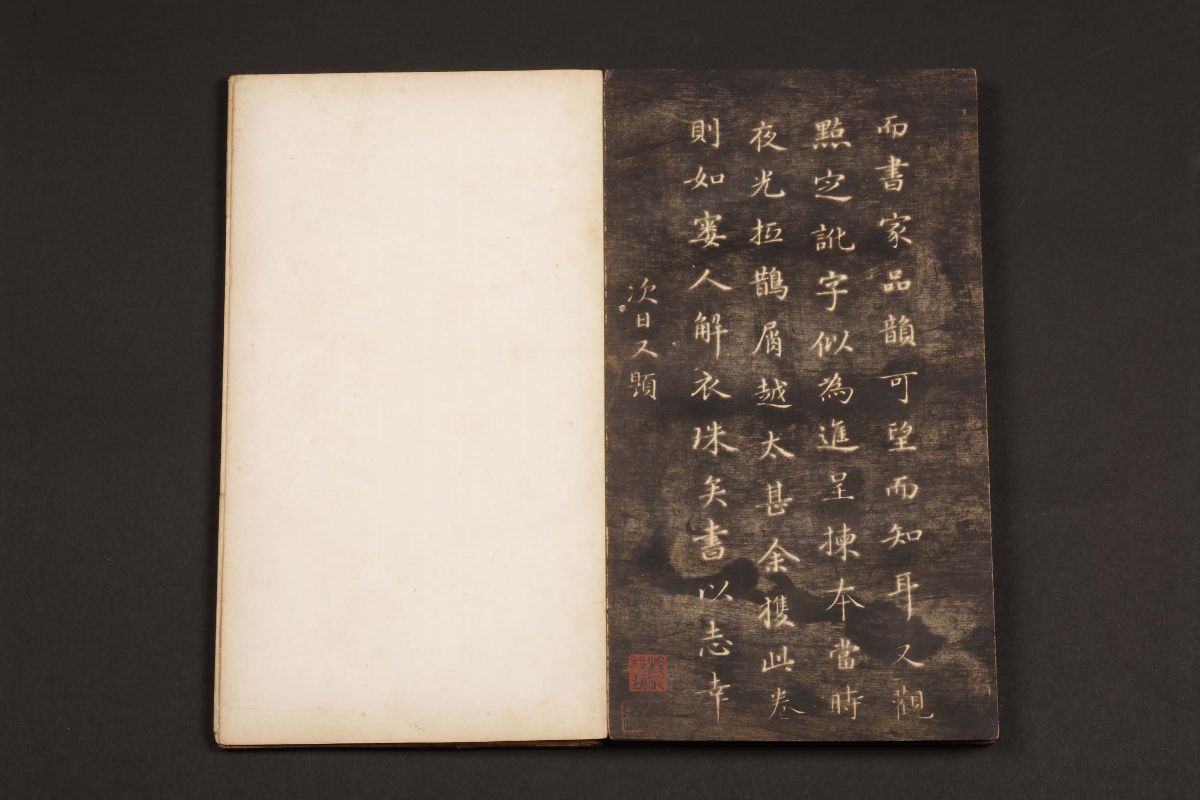 而書家品韻可望而知耳又觀
點定訛字似為進呈揀本當時
夜光抵鵲屑越太甚余擕此卷
則如窶人解衣珠矣書以志幸
次日又題